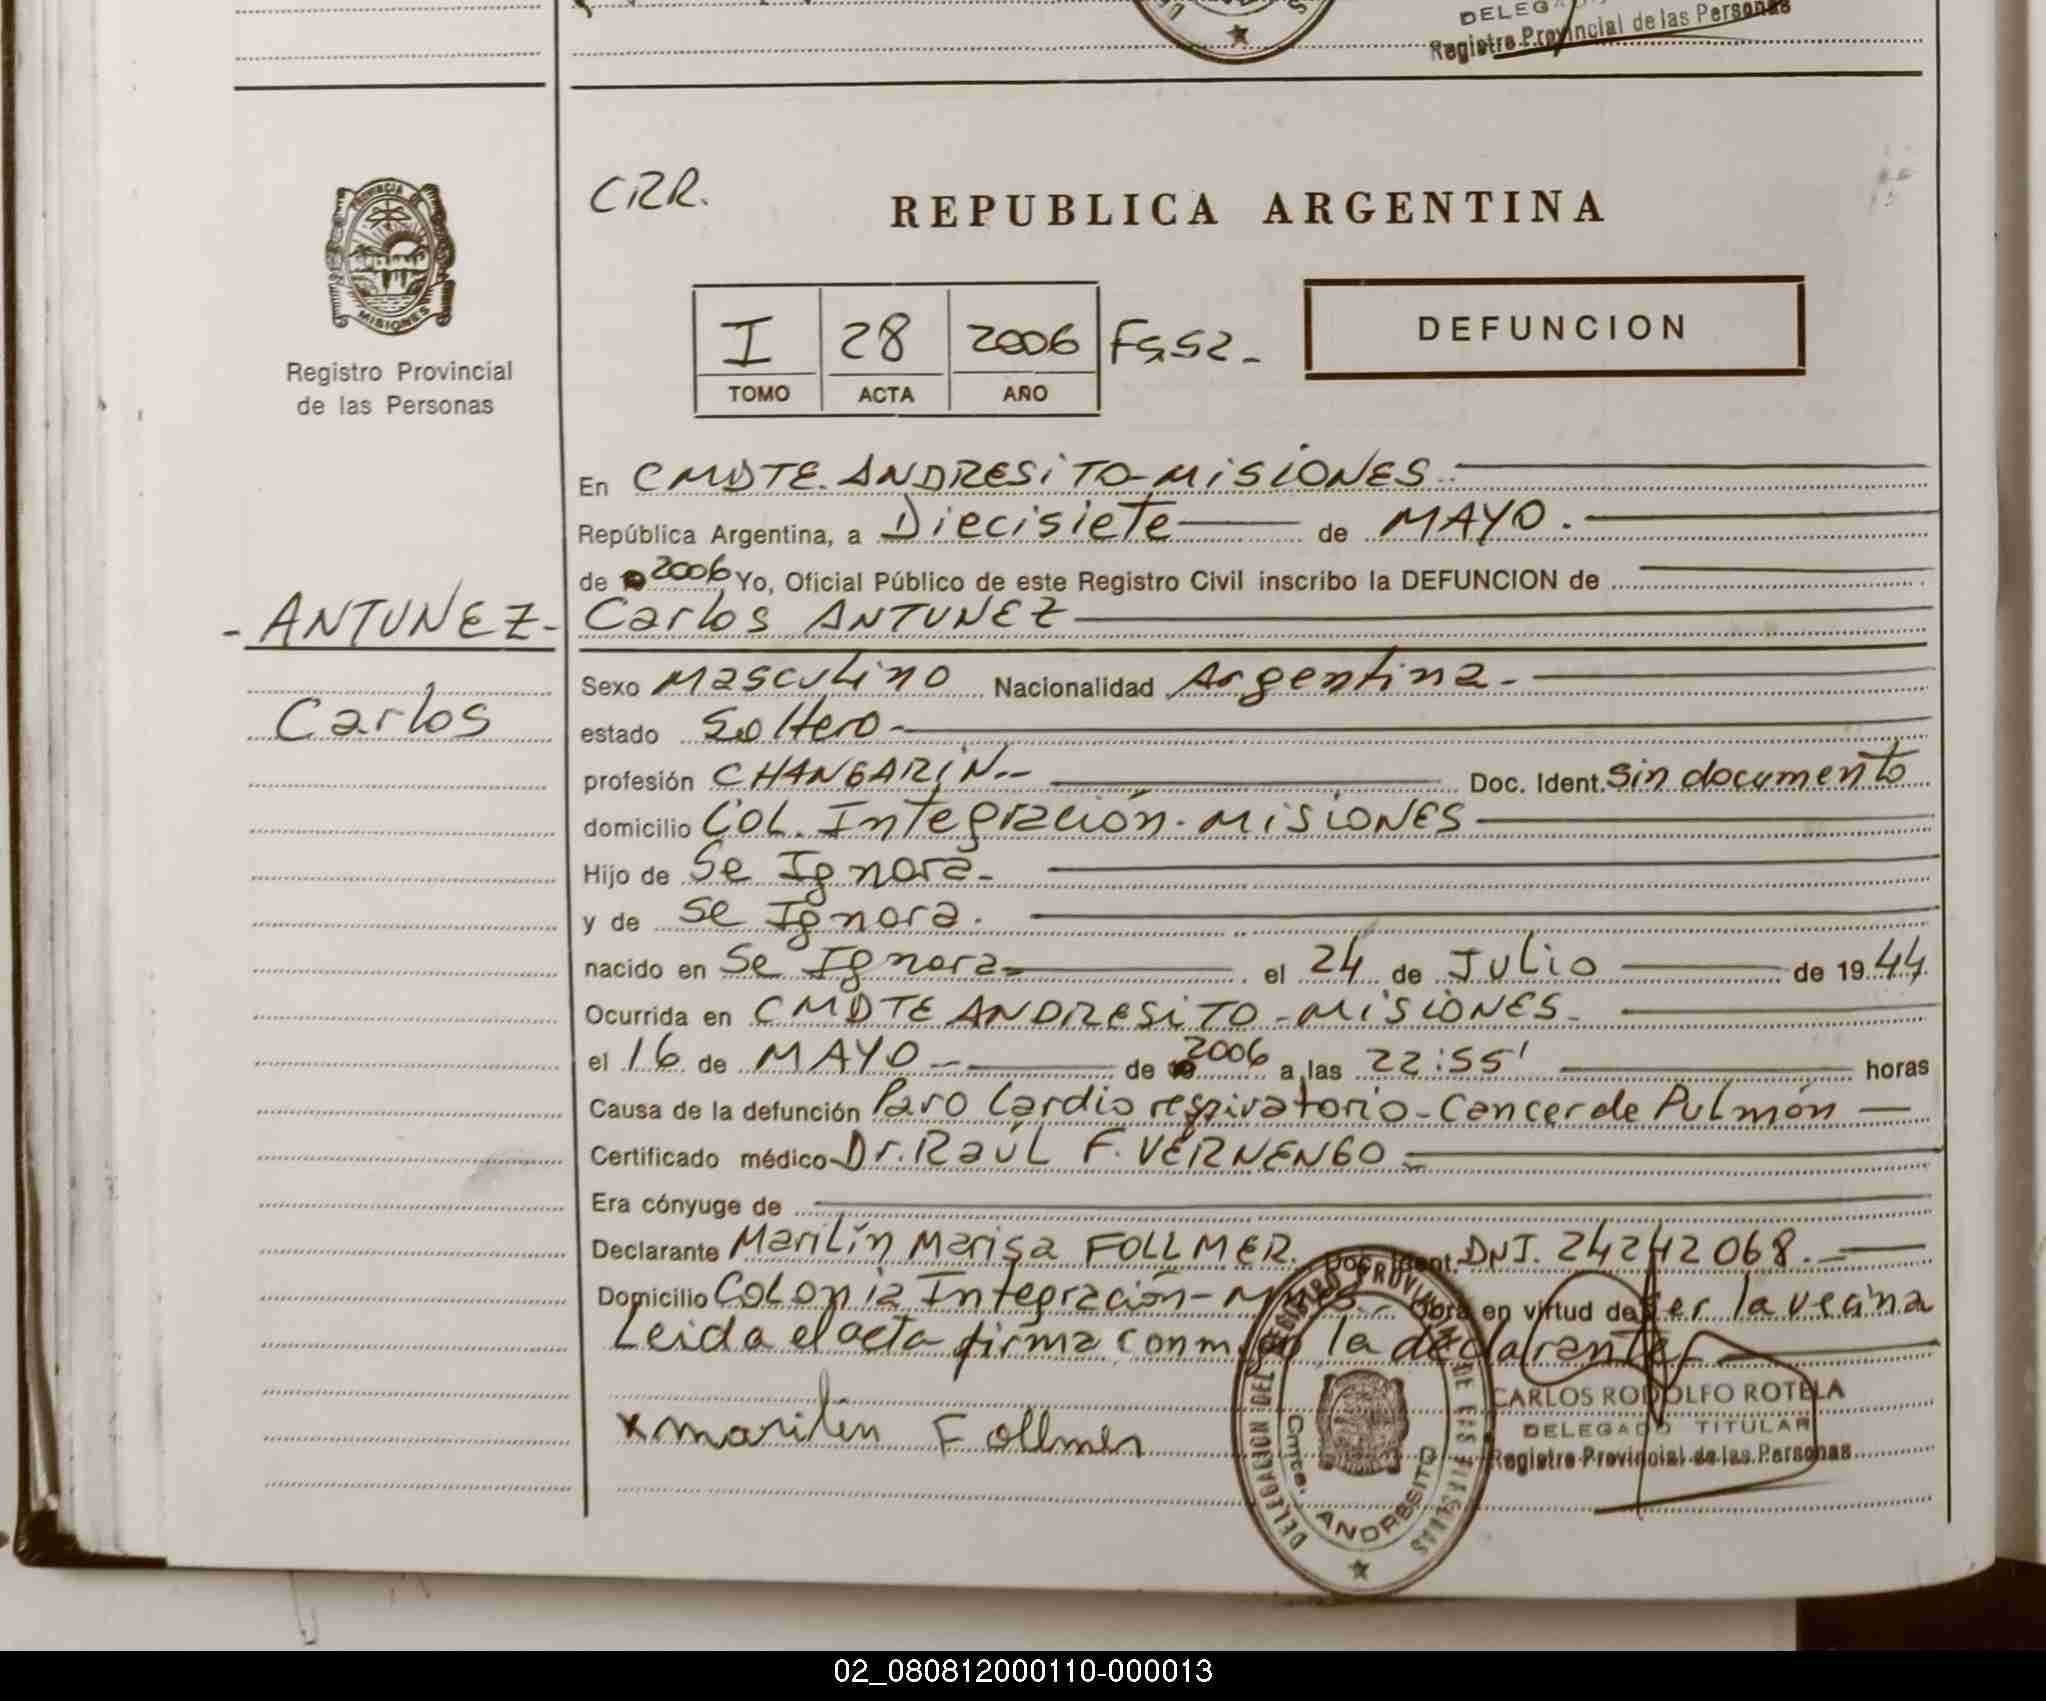 DELEGA
Registro Provincial de las Personas
PROVINCIA
MISIONES
Registro Provincial
de las Personas
CRR.
REPUBLICA ARGENTINA
I 28 2006 Fs52-
TOMO ACTA AÑO
DEFUNCION
En CMDTE. ANDRESiTO-MiSiONES.
República Argentina, a Diecisiete de MAYO.
de 2006 Yo, Oficial Público de este Registro Civil inscribo la DEFUNCION de
- ANTUNEZ- Carlos ANTUNEZ
Sexo Masculino Nacionalidad Argentina-
Carlos
estado Soltero-
profesión CHANGARÍN-- Doc. Ident. Sin documento
domicilio COL. Integración-MiSiONES
Hijo de Se Ignora-
y de Se Ignora.
nacido en Se Ignora- el 24 de Julio de 1944
Ocurrida en CMDTE ANDRESiTO-MiSiONES-
el 16 de MAYO- de 2006 a las 22:55' horas
Causa de la defunción Paro Cardio respiratorio-Cancer de Pulmón
Certificado médico Dr. Raúl F. VERNENGO-
Era cónyuge de
Declarante Marilín Marisa FOLLMER. Doc. Ident. DNI. 24242068.
Domicilio Colonia Integración- Obra en virtud de ser la vecina
Leida el acta firma conmigo la declarante
x marilin Follmer
DELEGACION DEL REGISTRO PROVINCIAL DE LAS PERSONAS
Cmte. ANDRESITO
CARLOS RODOLFO ROTELA
DELEGADO TITULAR
Registro Provincial de las Personas
02_080812000110-000013